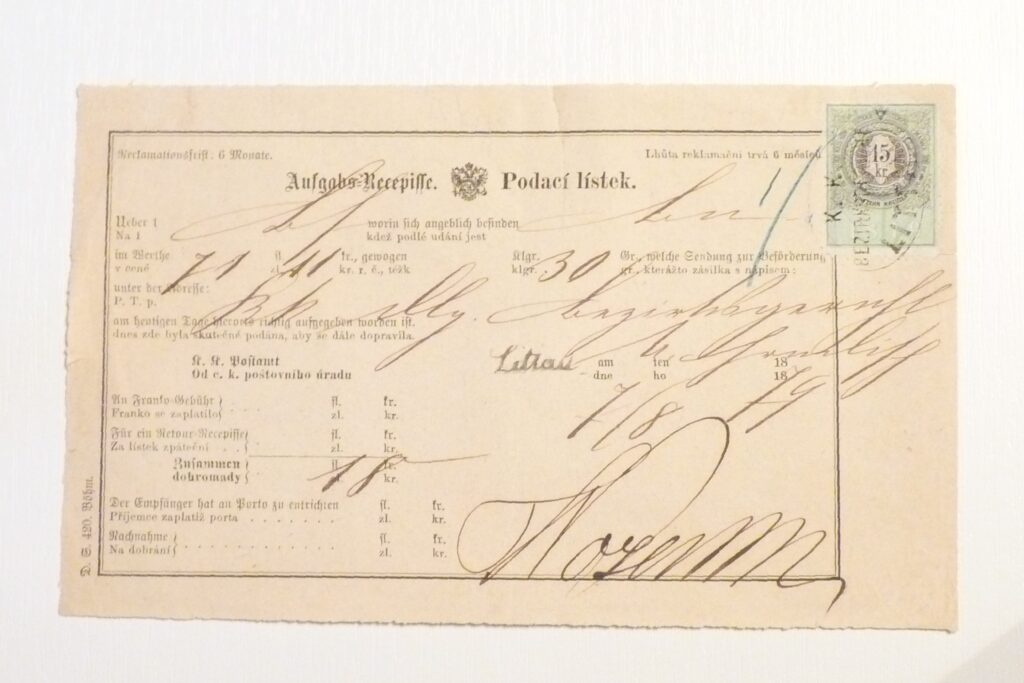 Reclamationsfrist: 6 Monate. Lhůta reklamační trvá 6 měsíců
Aufgabs-Recepisse. Podací lístek.
15
kr.
K. K.
BEZIRKS
LIT
Ueber 1 worin sich angeblich befinden
Na 1 kdež podlé udání jest
im Werthe 71 fl. 41 kr., gewogen Klgr. 30 Gr., welche Sendung zur Beförderung
v ceně zl. kr. r. č., těžk klgr. gr., kterážto zásilka s nápisem:
unter der Adresse:
P. T. p. Bezirksgericht
am heutigen Tage hierorts richtig aufgegeben worden ist.
dnes zde byla skutečně podána, aby se dále dopravila.
K. K. Postamt Littau am ten 18
Od c. k. poštovního úřadu dne ho 18
7/8 79
An Franko-Gebühr fl. kr.
Franko se zaplatilo zl. kr.
Für ein Retour-Recepisse fl. kr.
Za lístek zpáteční zl. kr.
Zusammen fl. kr.
dohromady 18 kr.
Der Empfänger hat an Porto zu entrichten fl. kr.
Příjemce zaplatiž porta zl. kr.
Nachnahme fl. kr.
Na dobrání zl. kr.
D. S. 420. Böhm.